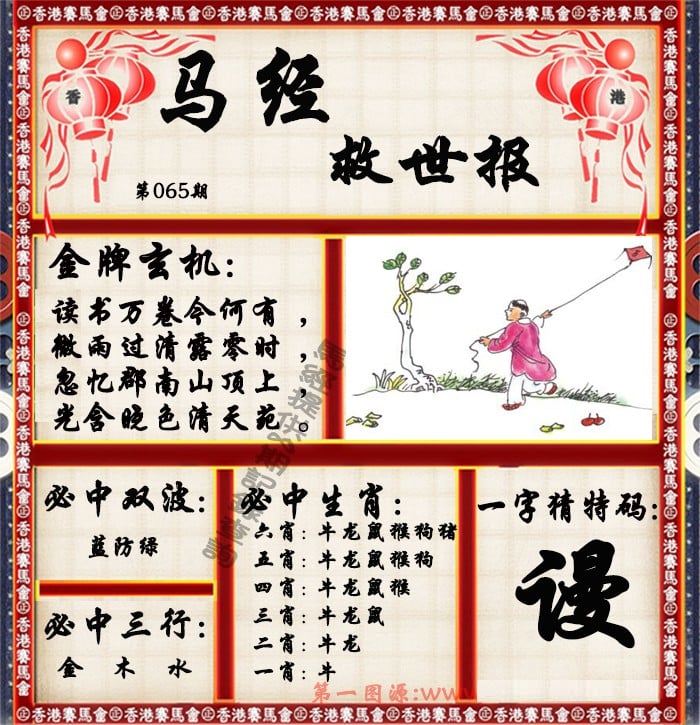 香港賽馬會
香 港
马经
救世报
第065期
金牌玄机:
读书万卷今何有,
微雨过清露零时,
忽忆郡南山顶上,
光含晓色清天苑。
必中双波:
蓝防绿
必中三行:
金 木 水
必中生肖:
六肖: 牛龙鼠猴狗猪
五肖: 牛龙鼠猴狗
四肖: 牛龙鼠猴
三肖: 牛龙鼠
二肖: 牛龙
一肖: 牛
一字猜特码:
谩
第一图源:www